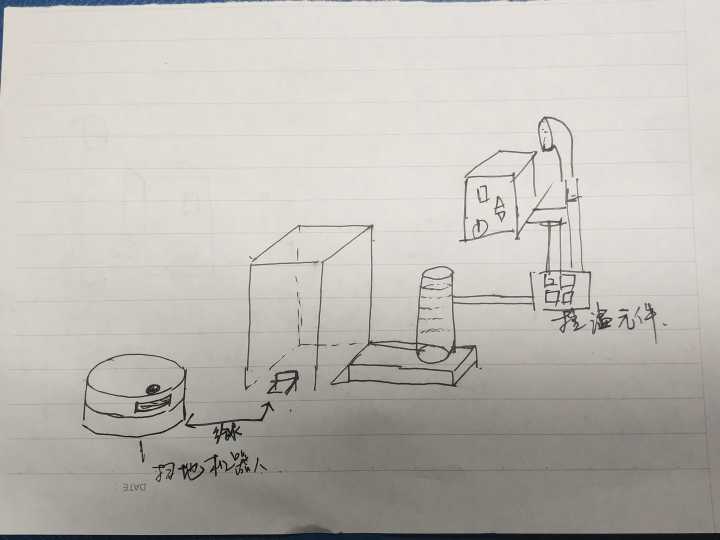 控温元件.
给水
扫地机器人.
DATE